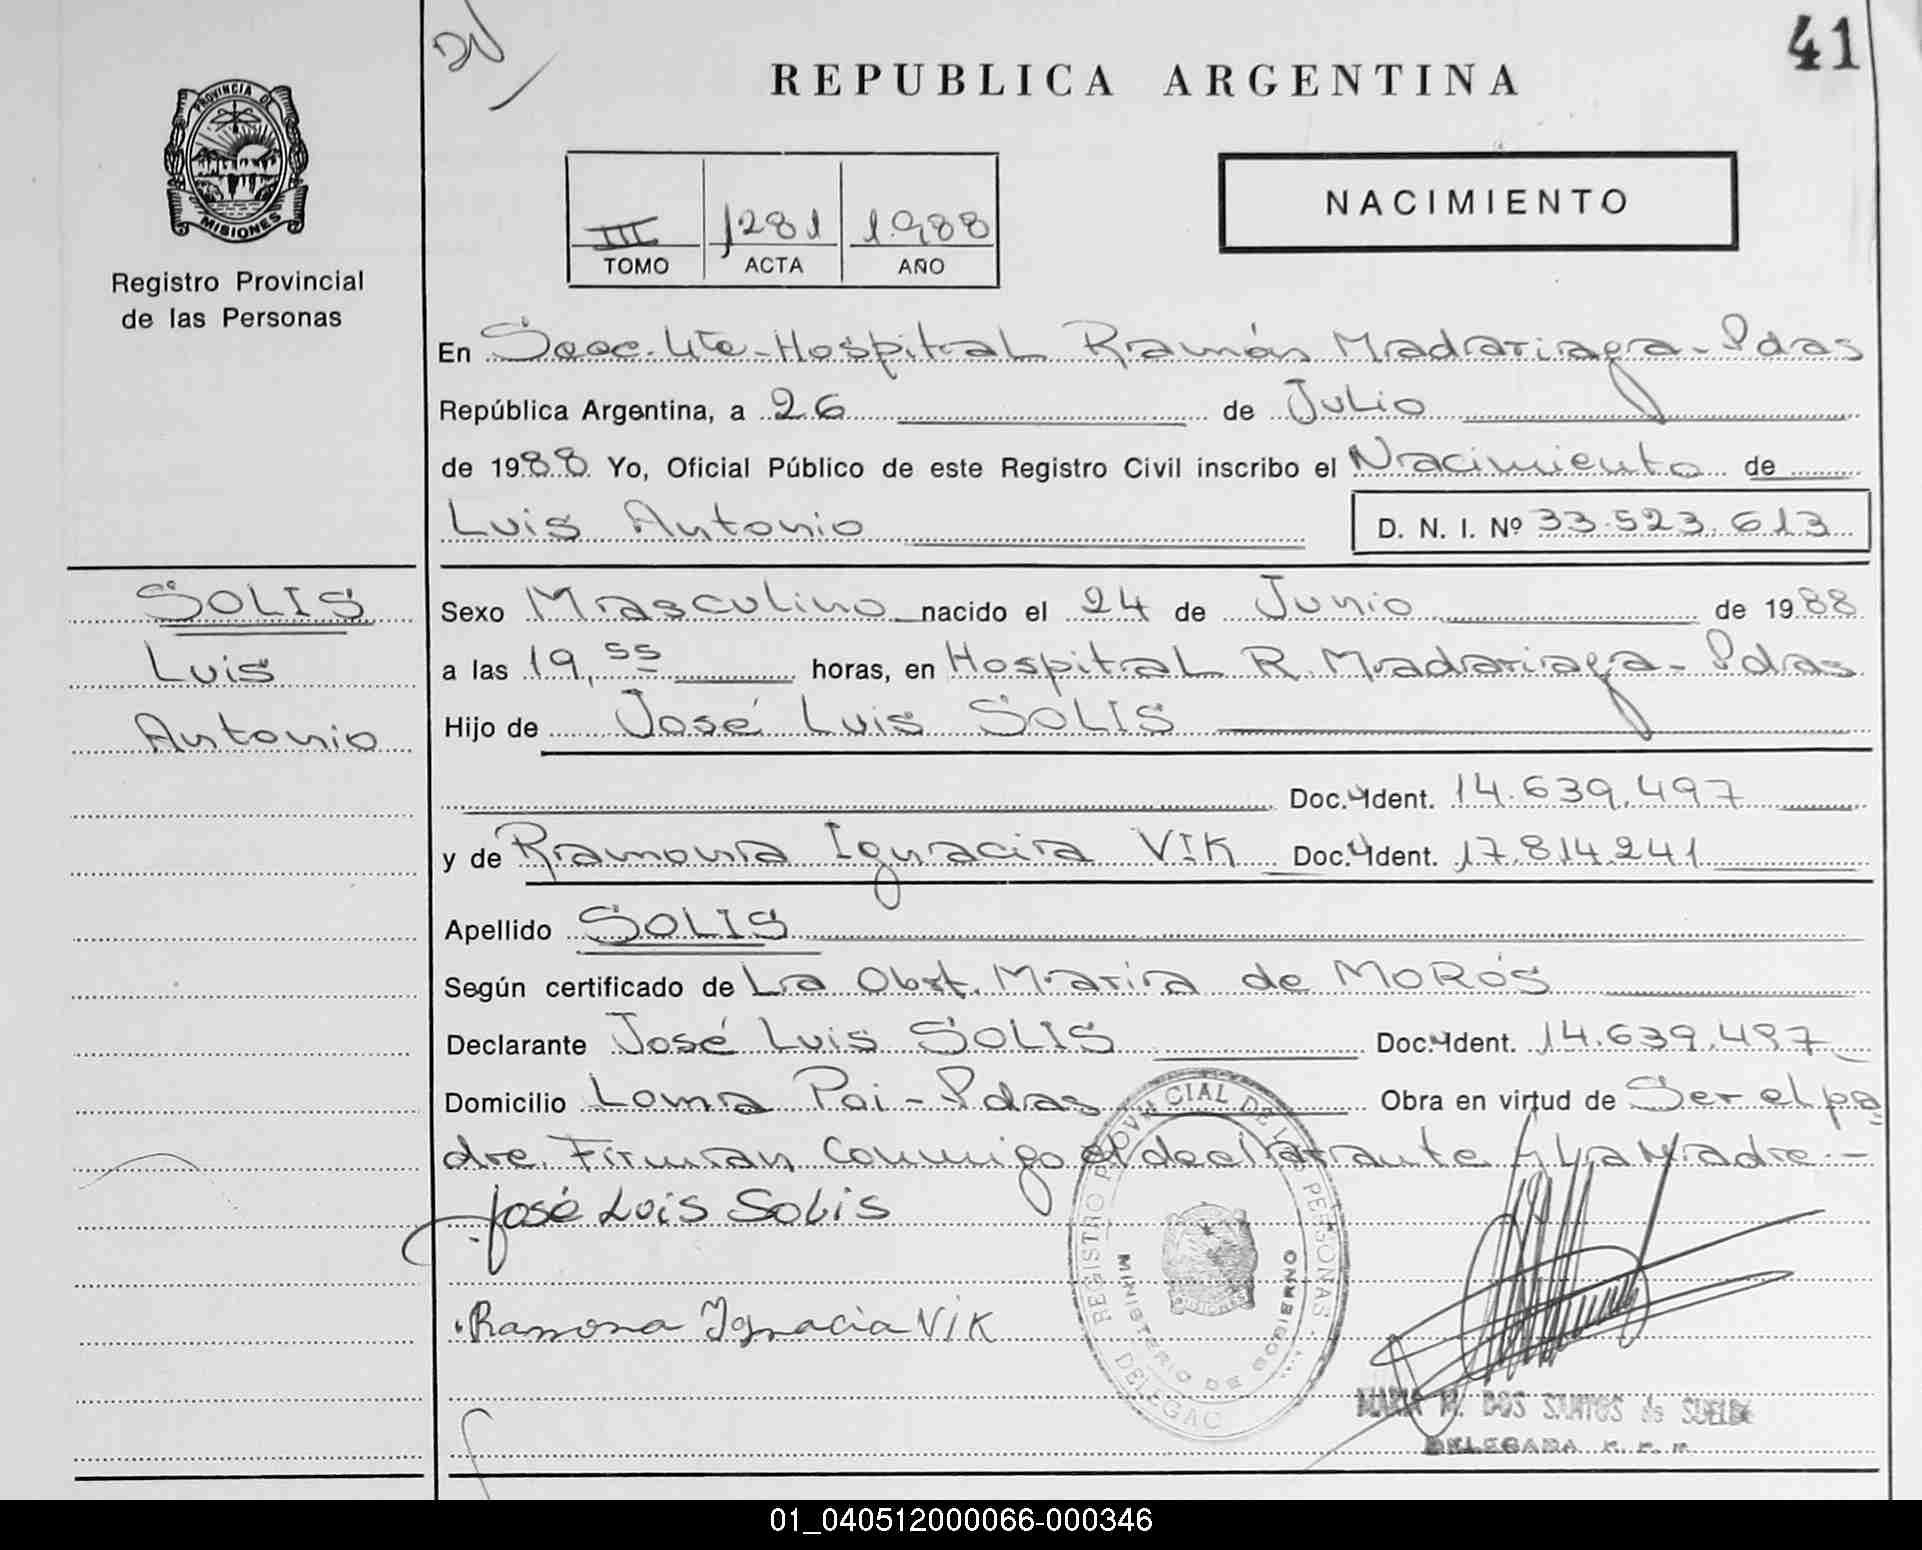 41
REPUBLICA ARGENTINA
PROVINCIA DE
MISIONES
Registro Provincial
de las Personas
NACIMIENTO
III 1281 1.988
TOMO ACTA AÑO
En Secc. 4ta - Hospital Ramón Madariaga - Pdas
República Argentina, a 26 de Julio
de 1988 Yo, Oficial Público de este Registro Civil inscribo el Nacimiento de
Luis Antonio D. N. I. Nº 33.523.613
SOLIS
Luis
Antonio
Sexo Masculino nacido el 24 de Junio de 1988
a las 19,55 horas, en Hospital R. Madariaga - Pdas
Hijo de José Luis SOLIS
Doc. Ident. 14.639.497
y de Ramona Ignacia VIK Doc. Ident. 17.814.241
Apellido SOLIS
Según certificado de La Obst. Maria de MORÓS
Declarante José Luis SOLIS Doc. Ident. 14.639.497
Domicilio Loma Poi - Pdas Obra en virtud de Ser el pa
dre. Firman conmigo el declarante y La Madre.-
José Luis Solis
Ramona Ignacia Vik
REGISTRO PROVINCIAL DE LAS PERSONAS
MINISTERIO DE GOBIERNO
DELEGAC
MARIA M. DOS SANTOS de SUELDE
DELEGADA
01_040512000066-000346